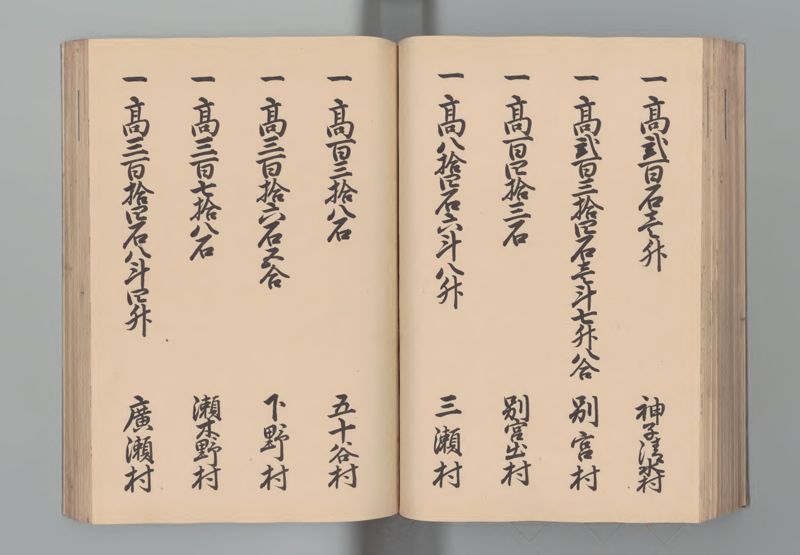 一 高弐百石壱升 神子清水村
一 高弐百三拾四石壱斗七升八合 別宮村
一 高百四拾三石 別宮出村
一 高八拾四石六斗八升 三瀬村
一 高百三拾八石 五十谷村
一 高三百拾六石五合 下野村
一 高三百七拾八石 瀬木野村
一 高三百拾四石八斗四升 廣瀬村